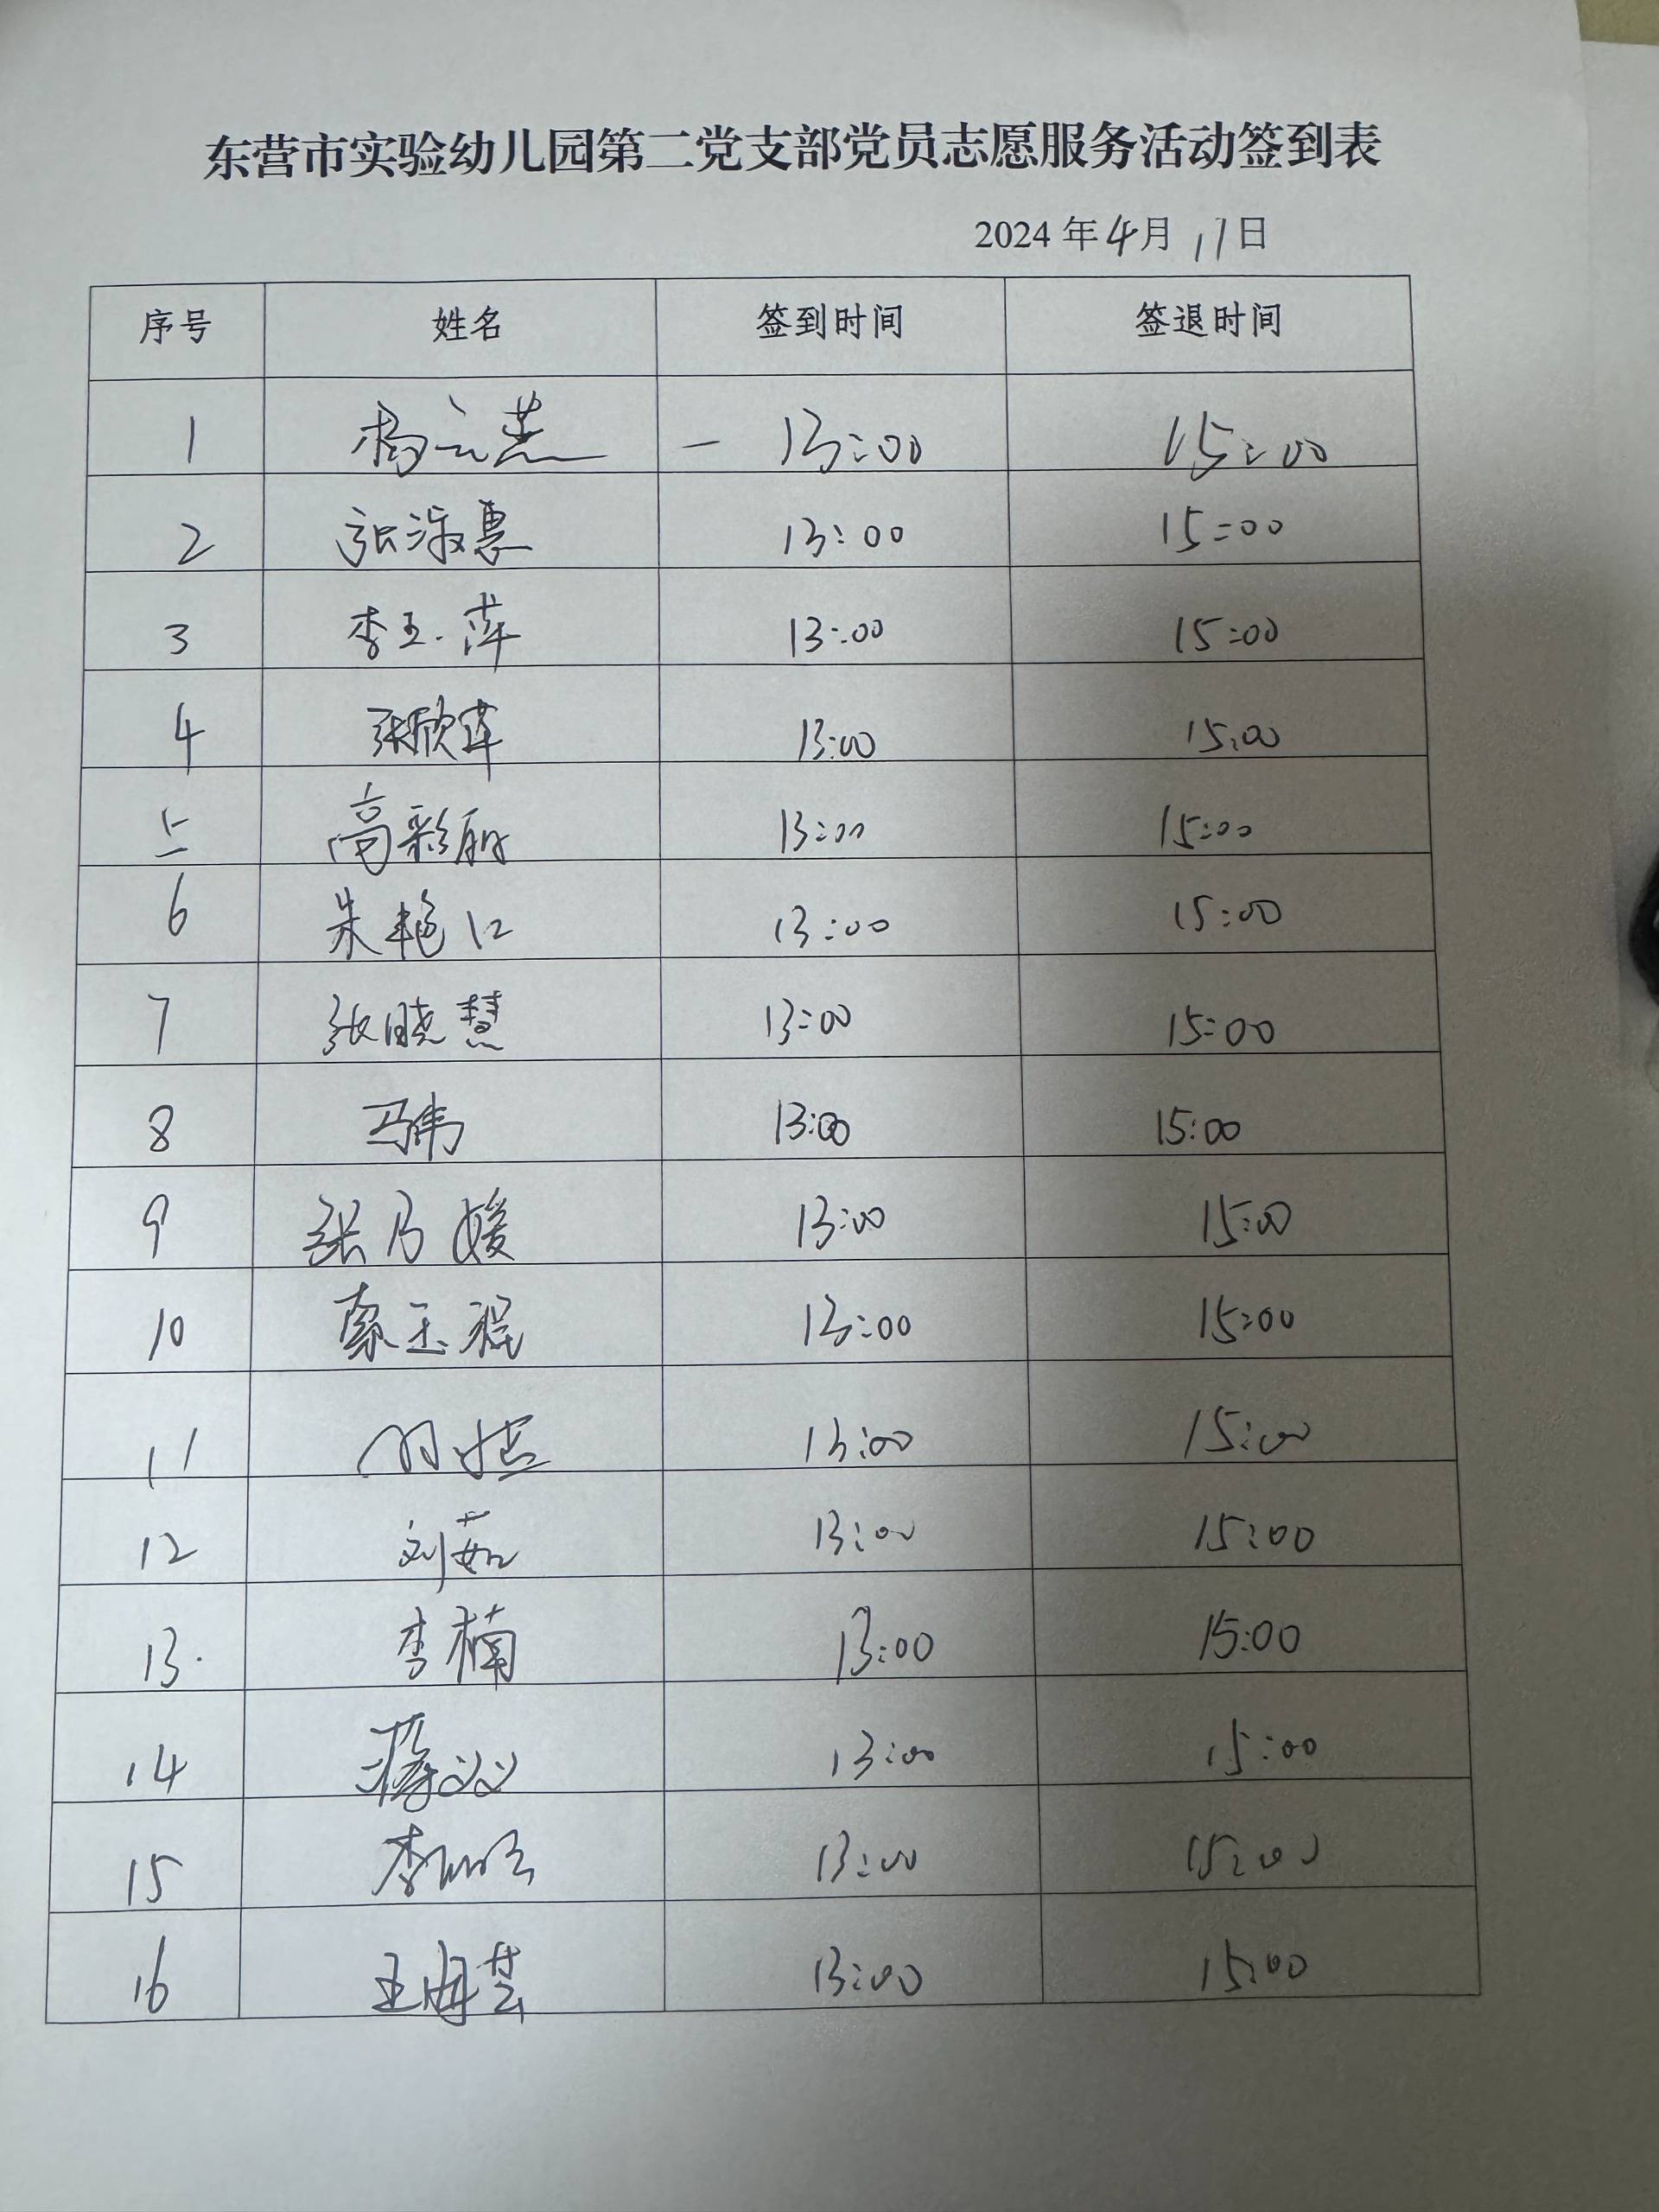 东营市实验幼儿园第二党支部党员志愿服务活动签到表
2024年4月11日
序号 姓名 签到时间 签退时间
1 杨云燕 13:00 15:00
2 张淑惠 13:00 15:00
3 李玉萍 13:00 15:00
4 张欣萍 13:00 15:00
5 高彩丽 13:00 15:00
6 朱艳红 13:00 15:00
7 张晓慧 13:00 15:00
8 马伟 13:00 15:00
9 张乃媛 13:00 15:00
10 13:00 15:00
11 13:00 15:00
12 刘茹 13:00 15:00
13. 李楠 13:00 15:00
14 蒋双双 13:00 15:00
15 李 13:00 15:00
16 王海芸 13:00 15:00